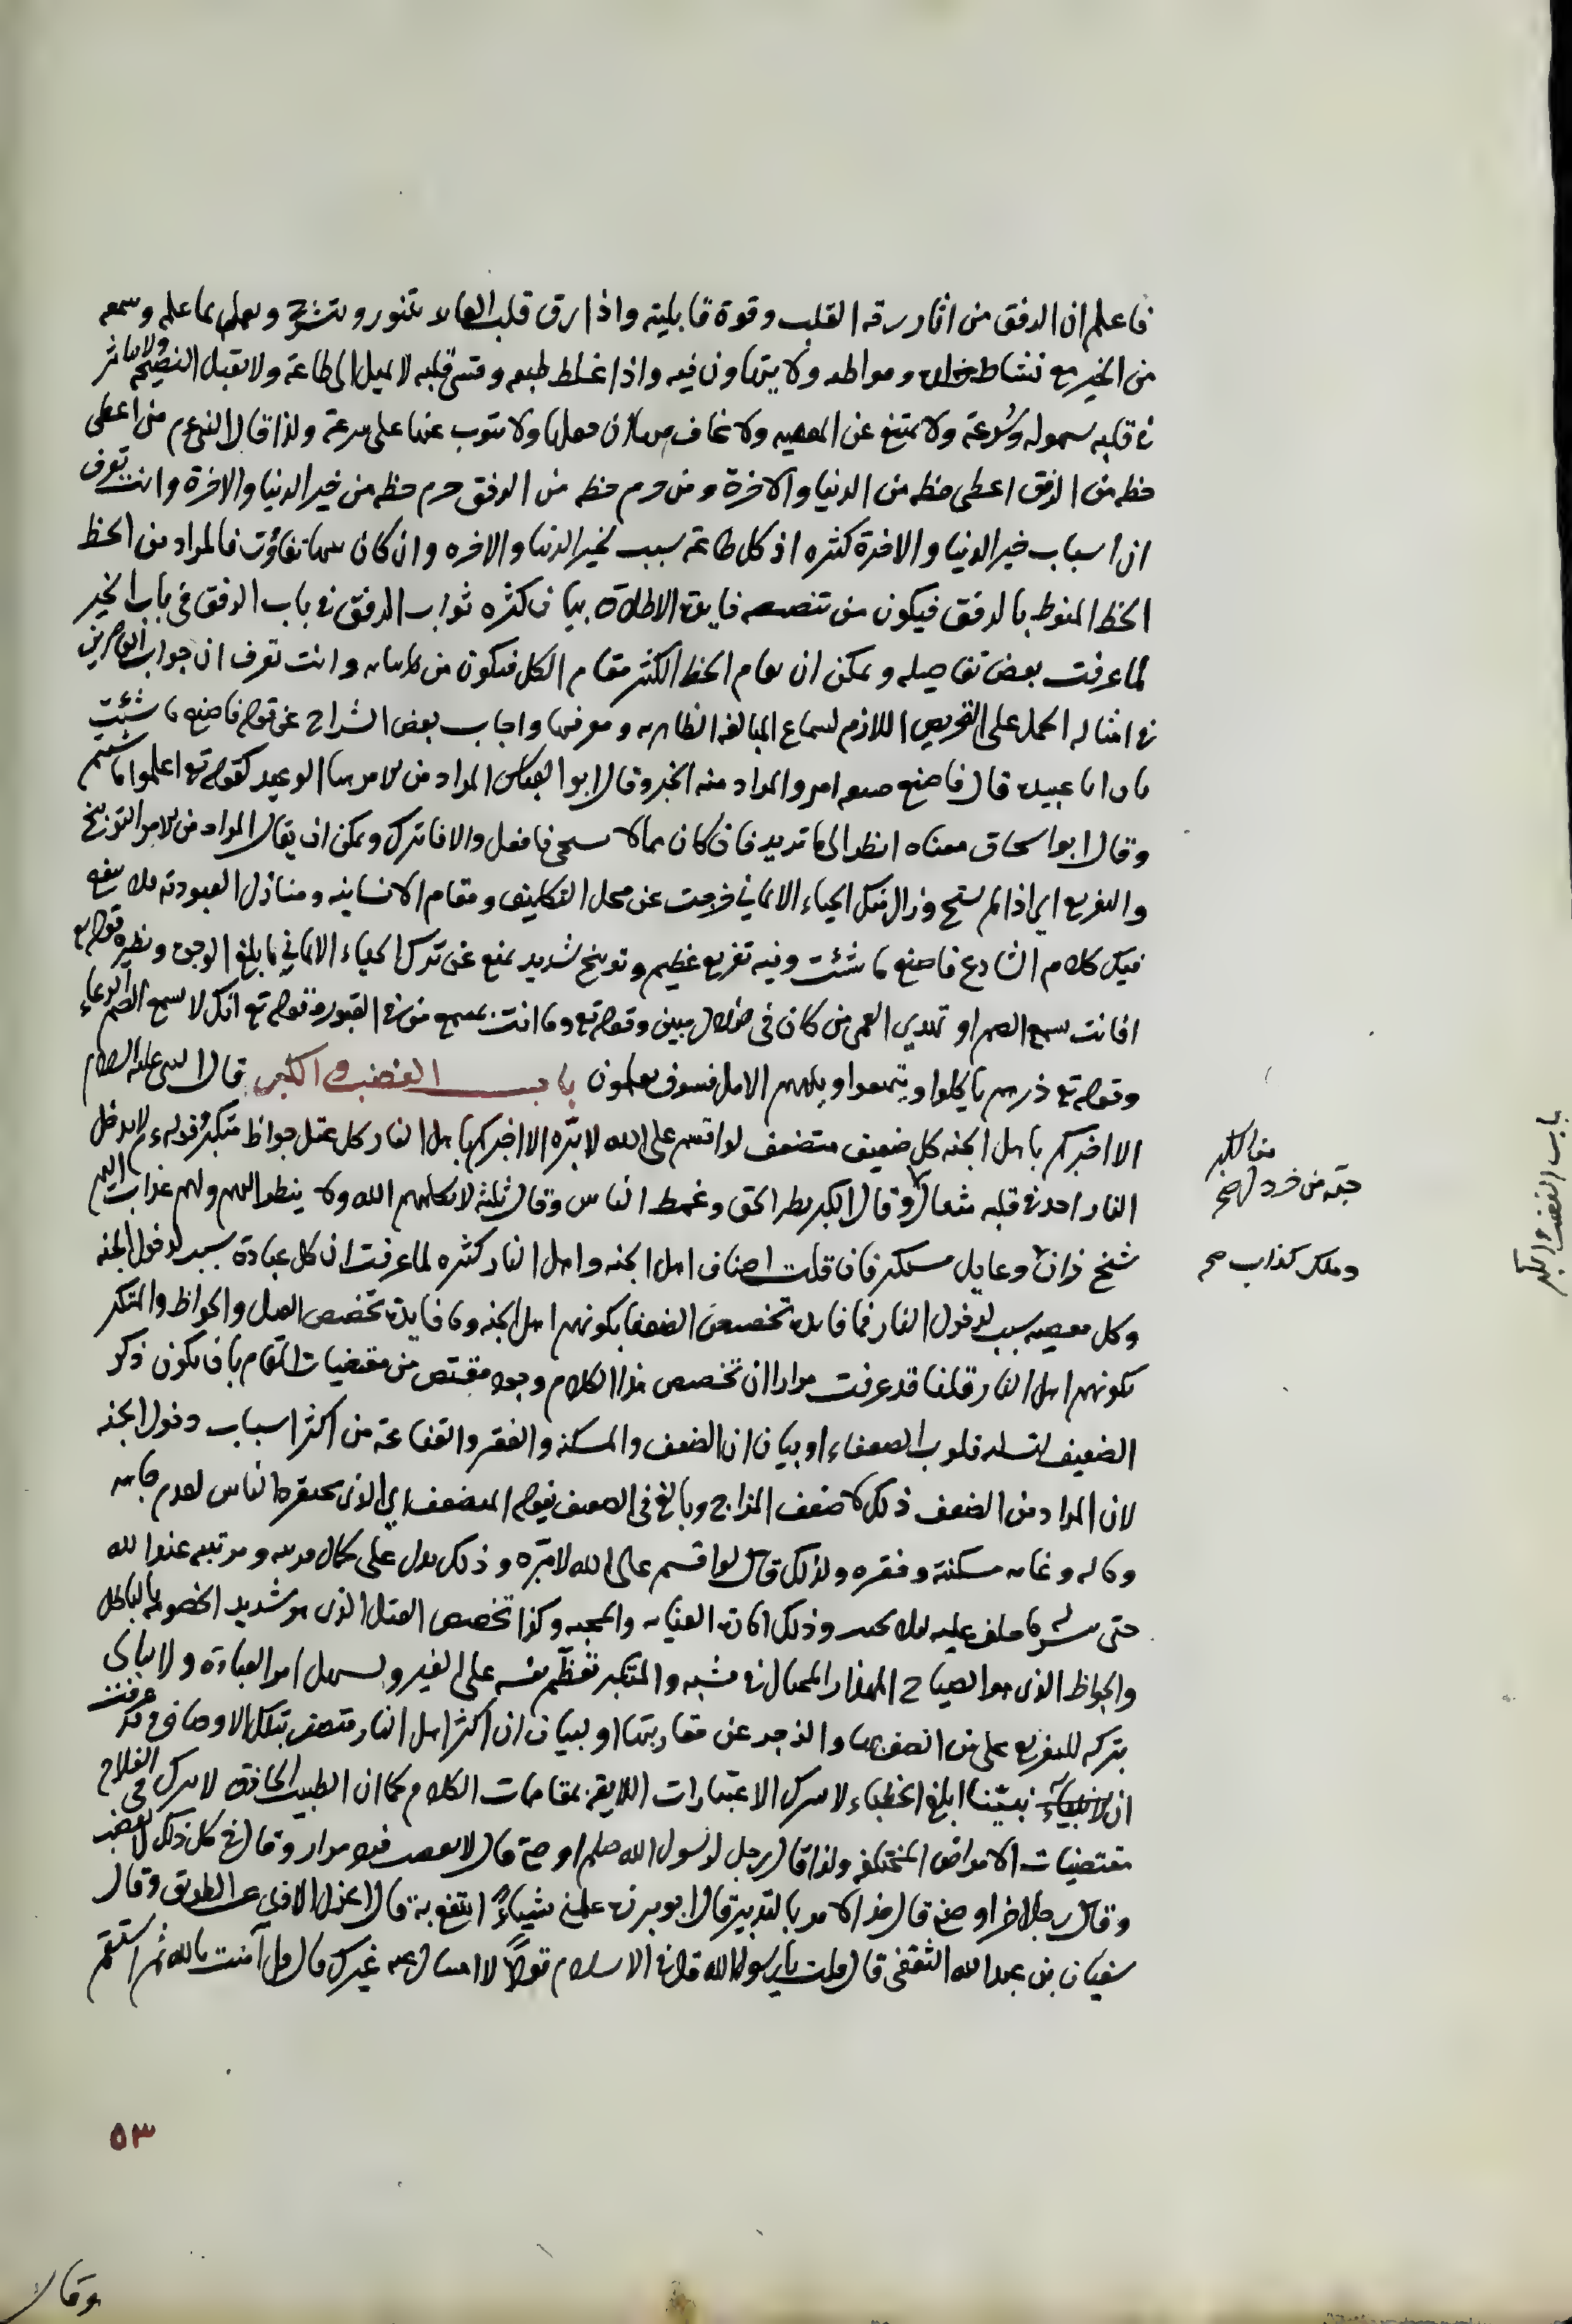 فاعلم ان الرفق من اثار رقه القلب وقوة قابليته واذا رق قلب العالا يتنور ويتشرح ويعلم بما علم وسمعه
من الخير مع نشاط ولا يتهاون فيه واذا غلظ طبعه وقسى قلبه لا يميل الى طاعة ولا يقبل النصيحه ولا تاثر
فى قلبه سهوله وسرعة ولا يمتنع عن المعصيه ولا يخاف ولا يتوب عنها على سرعة ولذا قال النبى ءم من اعطى
حظه من الرفق اعطى حظه من الدنيا والاخرة ومن حرم حظه من الرفق حرم حظه من خير الدنيا والاخرة وانت تعرف
ان اسباب خير الدنيا والاخرة كثيره اذ كل طاعة سبب لخير الدنيا والاخره وان كان بينها تفاوت فالمراد من الحظ
الحظ المنوط بالرفق فيكون من فايدة الاطلاق بيان كثره ثواب الرفق فى باب الرفق فى باب الخير
لما عرفت بعض تفاصيله ويمكن ان يقام الحظ الكثير مقام الكل فيكون من وانت تعرف ان جواب
فى امثاله الحمل على التحريص اللازم لسماع المبالغه الظاهره ومعرفتها واجاب بعض الشراح عن قوله فاصنع ما شئت
بان ابا عبيدة قال فاصنع صيغه امر والمراد منه الخبر وقال ابو العباس المراد من الامر هنا الوعيد كقوله تع اعملوا ما شئتم
وقال ابو اسحاق معناه انظر الى ما تريد فان كان مما لا يستحى فافعل والا فاترك ويمكن ان يقال المراد من الامر التوبيخ
والتقريع اى اذا لم تستح وزال منك الحياء الايمانى خرجت عن محل التكليف ومقام الانسانيه ومنازل العبوديه فلا ينفع
فيك كلام الشارع فاصنع ما شئت وفيه تقريع عظيم وتوبيخ شديد يمنع عن ترك الحياء الايمانى بابلغ الوجوه ونظيره قوله تع
افانت تسمع الصم او تهدى العمى من كان فى ضلال مبين وقوله تع وما انت بمسمع من فى القبور وقوله تع انك لا تسمع الصم الدعاء
وقوله تع ذرهم ياكلوا ويتمتعوا ويلههم الامل فسوف يعلمون باب الغضب والكبر قال النبى عليه السلام
الا اخبركم باهل الجنه كل ضعيف متضعف لو اقسم على الله لابرّه الا اخبركم باهل النار كل عتل جواظ متكبر وقوله ءم لا يدخل
النار احد فى قلبه مثقال وقال الكبر بطر الحق وغمط الناس وقال ثلثه لا يكلمهم الله ولا ينظر اليهم ولهم عذاب اليم
شيخ زان وعايل مستكبر فان قلت اصناف اهل الجنه واهل النار كثيره لما عرفت ان كل عبادة سبب لدخول الجنه
وكل معصيه سبب لدخول النار فما فايدة تخصيص الضعفا بكونهم اهل الجنه وما فايدة تخصيص العتل والجواظ والمتكبر
بكونهم اهل النار قلنا قد عرفت مرارا ان تخصيص هذا الكلام وجوه مقتضى من مقتضيات المقام بان يكون ذكر
الضعيف لتسليه قلوب الضعفاء او بيان ان الضعف والمسكنه والفقر والقناعة من اكثر اسباب دخول الجنه
لان المراد من الضعف ذلك لا ضعف المزاج وبالغ فى الضعيف بقوله المتضعف اى الذى يحتقره الناس لعدم جاهه
وماله وغايه مسكنته وفقره ولذلك قال لو اقسم على الله لابرّه وذلك يدل على كمال قربه ومرتبته عند الله
حتى ما حلف عليه لئلا يحنث وذلك العنايه والمحبه وكذا تخصيص العتل الذى هو شديد الخصومه بالباطل
والجواظ الذى هو الصياح المهذار المختال فى مشيه والمتكبر تعظّم نفسه على الغير ويسهل امر العبادة ولا يبالى
بتركه للتقريع على من اتصف بها والزجر عن مقاربتها او لبيان ان اكثر اهل النار متصف بتلك الاوصاف وقد عرفت
ان نبيّنا ابلغ الخطباء لا يترك الاعتبارات اللايقة بمقامات الكلام كما ان الطبيب الحاذق لا يترك فى العلاج
مقتضيات الامراض المختلفه ولذا قال رجل لرسول الله صلم اوصنى قال لا تغضب فردد مرارا وقال فى كل ذلك لا تغضب
وقال رجل اخر اوصنى قال خذ الامر بالتدبير قال ابو برزه علمنى شيياءً انتفع به قال اعزل الاذى عن الطريق وقال
سفيان بن عبد الله الثقفى قال قلت يا رسول الله قل لى فى الاسلام قولاً لا اسال عنه غيرك قال قل آمنت بالله ثم استقم
من الكبر
حبّة من خردل صح
وملك كذاب صح
باب الغضب والكبر
٥٣
وقال